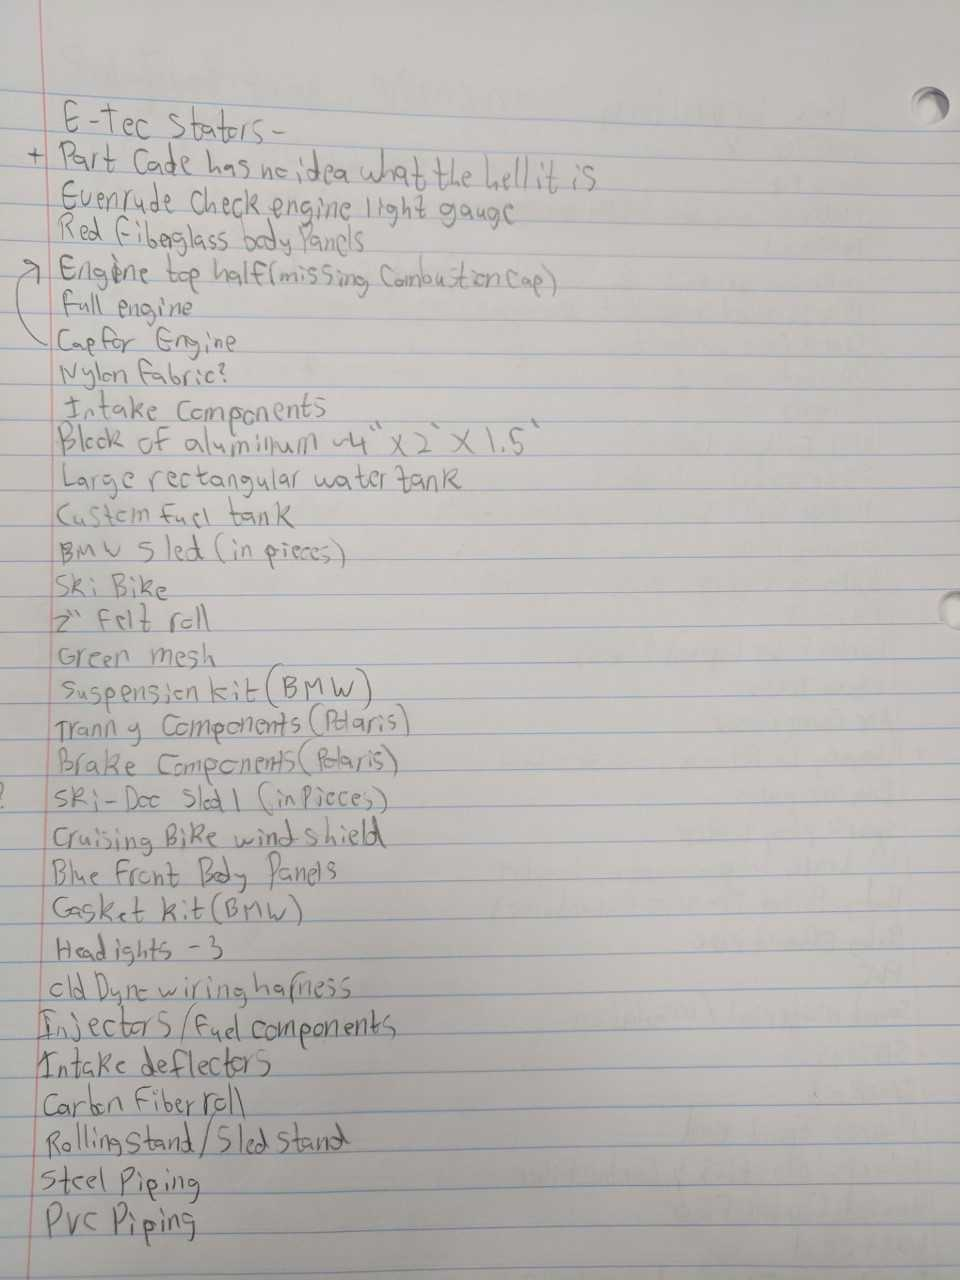 E-Tec Stators-
+ Part Cade has no idea what the hell it is
Evenrude Check engine light gauge
Red Fiberglass body Panels
Engine top half (missing Combustion Cap)
Full engine
Cap for Engine
Nylon Fabric?
Intake Components
Block of aluminum ~4" x 2" x 1.5"
Large rectangular water tank
Custom fuel tank
BMW Sled (in pieces)
Ski Bike
2" Felt roll
Green mesh
Suspension kit (BMW)
Tranny Components (Polaris)
Brake Components (Polaris)
? Ski-Doo Sled 1 (in Pieces)
Cruising Bike windshield
Blue Front Body Panels
Gasket kit (BMW)
Headights - 3
Old Dyno wiring harness
Injectors/Fuel components
Intake deflectors
Carbon Fiber roll
Rolling Stand/Sled Stand
Steel Piping
PVC Piping